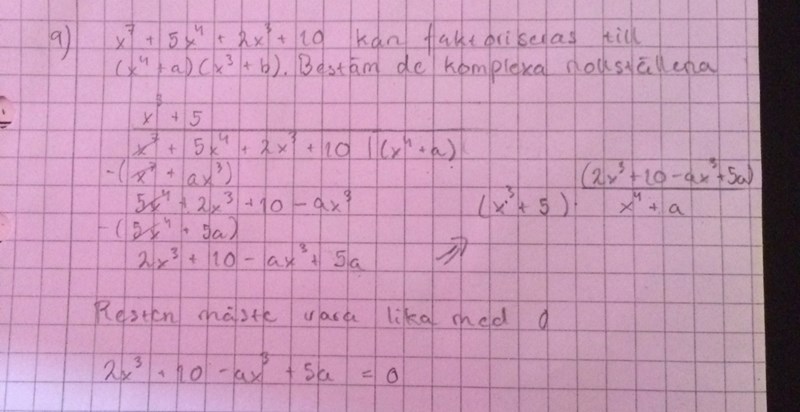 a) x⁷ + 5x⁴ + 2x³ + 10 kan faktoriseras till
(x⁴ + a)(x³ + b). Bestäm de komplexa nollställena
x³ + 5
x⁷ + 5x⁴ + 2x³ + 10 |(x⁴ + a)
-(x⁷ + ax³)
5x⁴ + 2x³ + 10 - ax³
-(5x⁴ + 5a)
2x³ + 10 - ax³ + 5a
⇒ (x³ + 5) · (2x³ + 10 - ax³ + 5a) / x⁴ + a
Resten måste vara lika med 0
2x³ + 10 - ax³ + 5a = 0